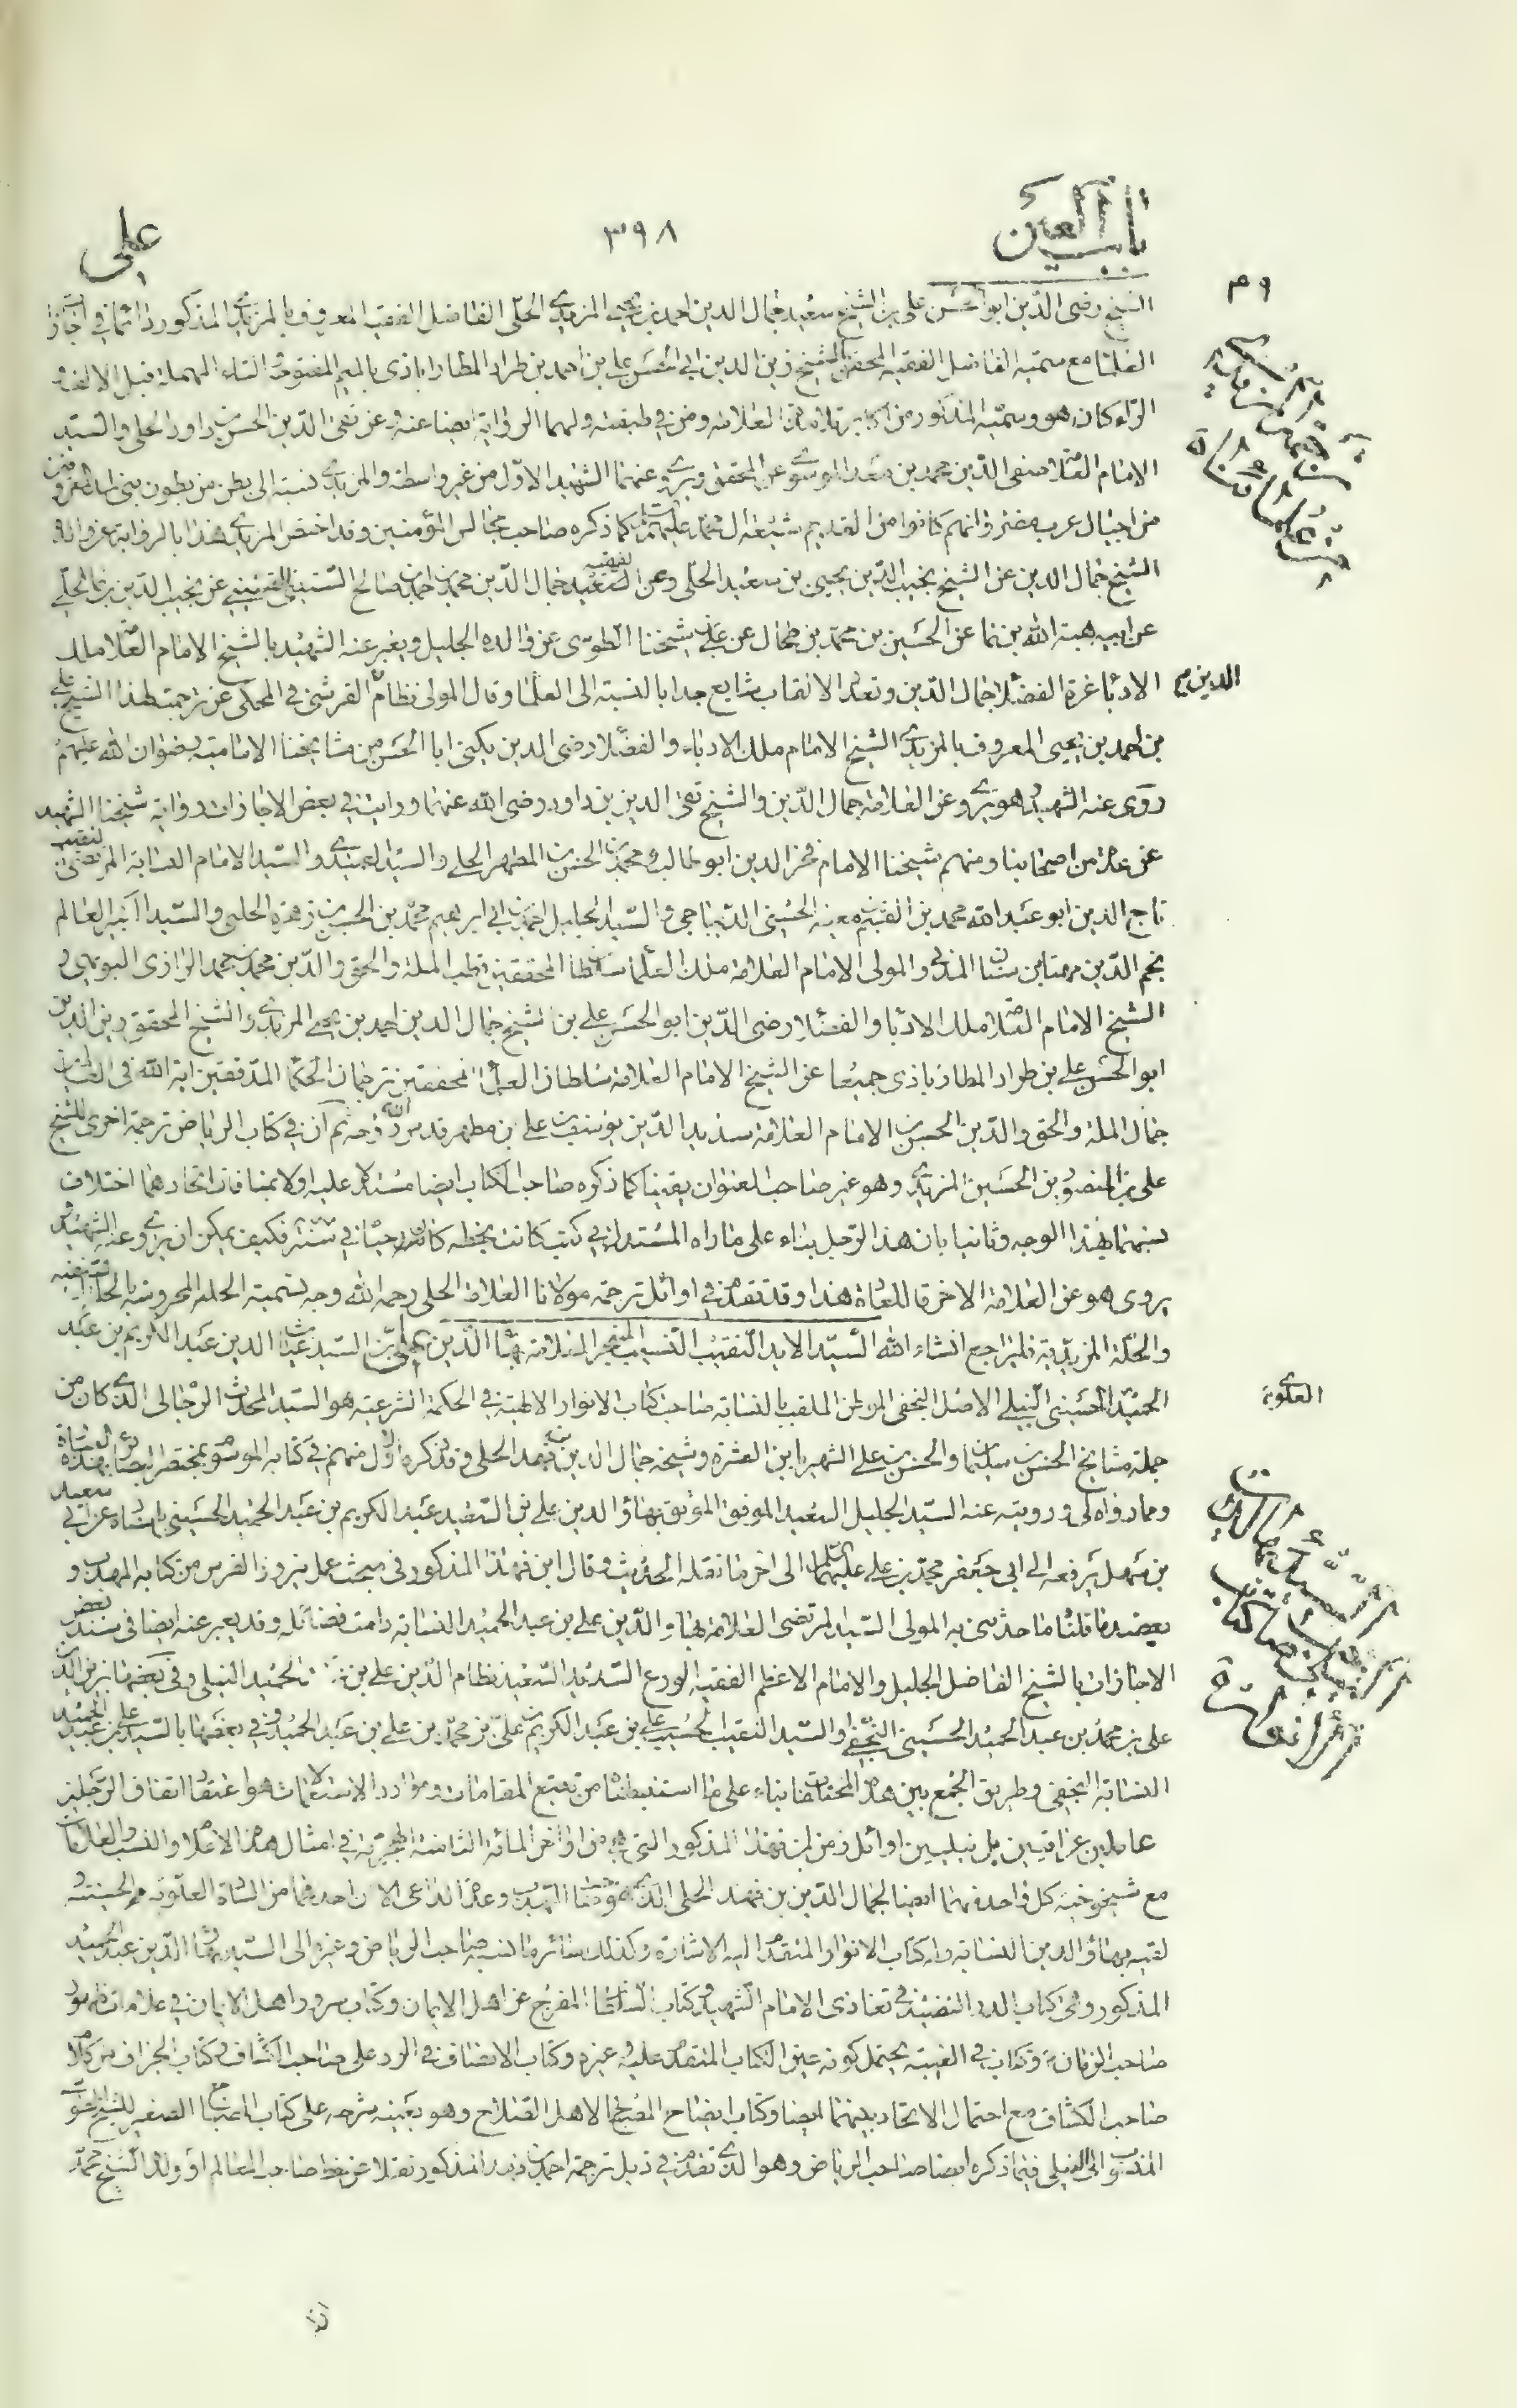 باب العين
٣٩٨
علي
الشيخ رضى الدين ابو الحسن على بن الشيخ سعيد جمال الدين احمد بن يحيى المزيدى الحلى الفاضل الفقيه المعروف بالمزيدى المذكور دائما في اجازات
العلماء مع سميه الفاضل الفقيه المحقق الشيخ زين الدين ابى الحسن على بن احمد بن طراد المطارابادى بالميم المفتوحة و الطاء المهملة قبل الالف و
الراء كان هو وسميه المذكور من اكابر تلامذة العلامة ومن في طبقته ولهما الرواية ايضا عنه وعن تقى الدين الحسن بن داود الحلى والسيد
الامام العلامة صفى الدين محمد بن معد الموسوى عن المحقق ويروى عنهما الشهيد الاول من غير واسطة والمزيدى نسبته الى بطن من بطون بنى اسد المعروفين
من اجيال عرب مضر وانهم كانوا من القديم شيعة ال محمد عليهم السلام كما ذكره صاحب مجالس المؤمنين وقد اختص المزيدى هذا بالرواية عن والده
الشيخ جمال الدين عن الشيخ نجيب الدين يحيى بن سعيد الحلى وعن الفقيه السعيد جمال الدين محمد بن احمد بن صالح السيبى القسينى عن نجيب الدين بن نما الحلى
عن ابيه هبة الله بن نما عن الحسين بن محمد بن طحال عن على بن شيخنا الطوسى عن والده الجليل ويعبر عنه الشهيد بالشيخ الامام العلامة ملك
الادباء غرة الفضلاء جمال الدين وتعدد الالقاب شايع جدا بالنسبة الى العلماء وقال المولى نظام القرشى في المحكى عن ترجمته لهذا الشيخ على
الدين م
بن احمد بن يحيى المعروف بالمزيدى الشيخ الامام ملك الادباء والفضلاء رضى الدين يكنى ابا الحسن من مشايخنا الامامية رضوان الله عليهم
روى عنه الشهيد وهو يروى عن العلامة جمال الدين والشيخ تقى الدين بن داود رضى الله عنهما ورايت في بعض الاجازات رواية شيخنا الشهيد
عن عدة من اصحابنا ومنهم شيخنا الامام فخر الدين ابو طالب محمد بن الحسن بن المطهر الحلى والسيد العميدى والسيد الامام العلامة المرتضى النقيب
تاج الدين ابو عبد الله محمد بن القسم بن معية الحسنى الديباجى والسيد الجليل احمد بن ابى ابرهيم محمد بن الحسن بن زهرة الحلبى والسيد الكبير العالم
نجم الدين مهنا بن سنان المدنى والمولى الامام العلامة ملك العلماء سلطان المحققين قطب الملة والحق والدين محمد بن محمد الرازى البويهى و
الشيخ الامام العلامة ملك الادباء والفضلاء رضى الدين ابو الحسن على بن الشيخ جمال الدين احمد بن يحيى المزيدى والشيخ المحقق زين الدين
ابو الحسن على بن طراد المطارابادى جميعا عن الشيخ الامام العلامة سلطان العلماء المحققين ترجمان الحكماء المدققين اية الله في العالمين
جمال الملة والحق والدين الحسن بن الامام العلامة سديد الدين يوسف بن على بن مطهر قدس الله روحه ثم ان في كتاب الرياض ترجمة اخرى للشيخ
على بن المنصور بن الحسين المزيدى وهو غير صاحب العنوان يقينا كما ذكره صاحب الكتاب ايضا مستدلا عليه اولا بمنافات اتحادهما اختلاف
نسبتهما بهذا الوجه وثانيا بان هذا الرجل بناء على ماراه المستدل في كتب كانت بخطه كان حيا في سنة فكيف يمكن ان يروى عنه الشهيد و
يروى هو عن العلامة الى اخر ما للعلامة هذا وقد تقدم في اوائل ترجمة مولانا العلامة الحلى رحمه الله وجه تسمية الحلة المحروسة بالحلة السيفية
والحلة المزيدية فليراجع انشاء الله السيد الايد النقيب النسيب المنجز العلامة بهاء الدين على بن السيد غياث الدين عبد الكريم بن عبد
الحميد الحسينى النيلى الاصل النجفى الموطن الملقب بالنسابة صاحب كتاب الانوار الالهية في الحكمة الشرعية هو السيد المحدث الرجالى الذى كان من
جملة مشايخ الحسن بن سليمان والحسن بن على الشهير بابن العشرة وشيخه جمال الدين بن فهد الحلى وقد ذكره الاول منهم في كتابه الموسوم بمختصر البصائر بهذه
ومما رواه لى ورويته عنه السيد الجليل السعيد الموفق الموثق بهاؤ الدين على بن السعيد عبد الكريم بن عبد الحميد الحسينى باسناده عن ابى سعيد
بن سهل يرفعه الى ابى جعفر محمد بن على عليهما السلام الى اخر ما نقله الحديث وقال ابن فهد هذا المذكور في مبحث عمل نيروز الفرس من كتابه المهذب و
يعضد ما قلناه ما حدثنى به المولى السيد المرتضى العلامة بهاء الدين على بن عبد الحميد النسابة دامت فضائله وقد يعبر عنه ايضا في سند بعض
الاجازات بالشيخ الفاضل الجليل والامام الاعظم الفقيه الورع السديد السعيد نظام الدين على بن عبد الحميد النيلى وفى بعضها بزين الدين
على بن محمد بن عبد الحميد الحسينى النجفى والسيد النقيب الحسيب على بن عبد الكريم بن على بن محمد بن على بن عبد الحميد وفي بعضها بالسيد على بن عبد الحميد
النسابة النجفى وطريق الجمع بين هذه المختلفات بناء على ما استنبطناه من تتبع المقامات وموارد الاستعمالات هو اعتقاد اتفاق الرجلين
عاملين عراقيين بل نيليين اوائل زمن ابن فهد المذكور التى هى من اواخر المائة الثامنة الهجرية في امثال هذه الاعلام والنسب والعلامات
مع شيخوخية كل واحد منهما ايضا لجمال الدين بن فهد الحلى الذى هو صاحب المهذب وعدة الداعى الا ان احدهما من السادة العلوية م الحسينية
لقبه بهاؤ الدين النسابة وله كتاب الانوار المتقدم اليه الاشارة وكذلك سائر ما نسبه صاحب الرياض وغيره الى السيد بهاء الدين عبد الحميد
المذكور وهى كتاب الدر النضيد في تعازى الامام الشهيد وكتاب السلطان المفرج عن اهل الايمان وكتاب سرور اهل الايمان في علامات ظهور
صاحب الزمان وكتاب في الغيبة يحتمل كونه عين الكتاب المتقدم عليه وغيره وكتاب الانصاف في الرد على صاحب الكشاف وكتاب الجزاف من كلام
صاحب الكشاف مع احتمال الاتحاد بينهما ايضا وكتاب ايضاح المصباح لاهل الصلاح وهو بعينه شرحه على كتاب المصباح الصغير للشيخ
المنسوب الى النيلى فيما ذكره ايضا صاحب الرياض وهو الذى تقدم في ذيل ترجمة احمد بن فهد المذكور نقلا عن خط صاحب المعالم او ولده الشيخ محمد
العلوية